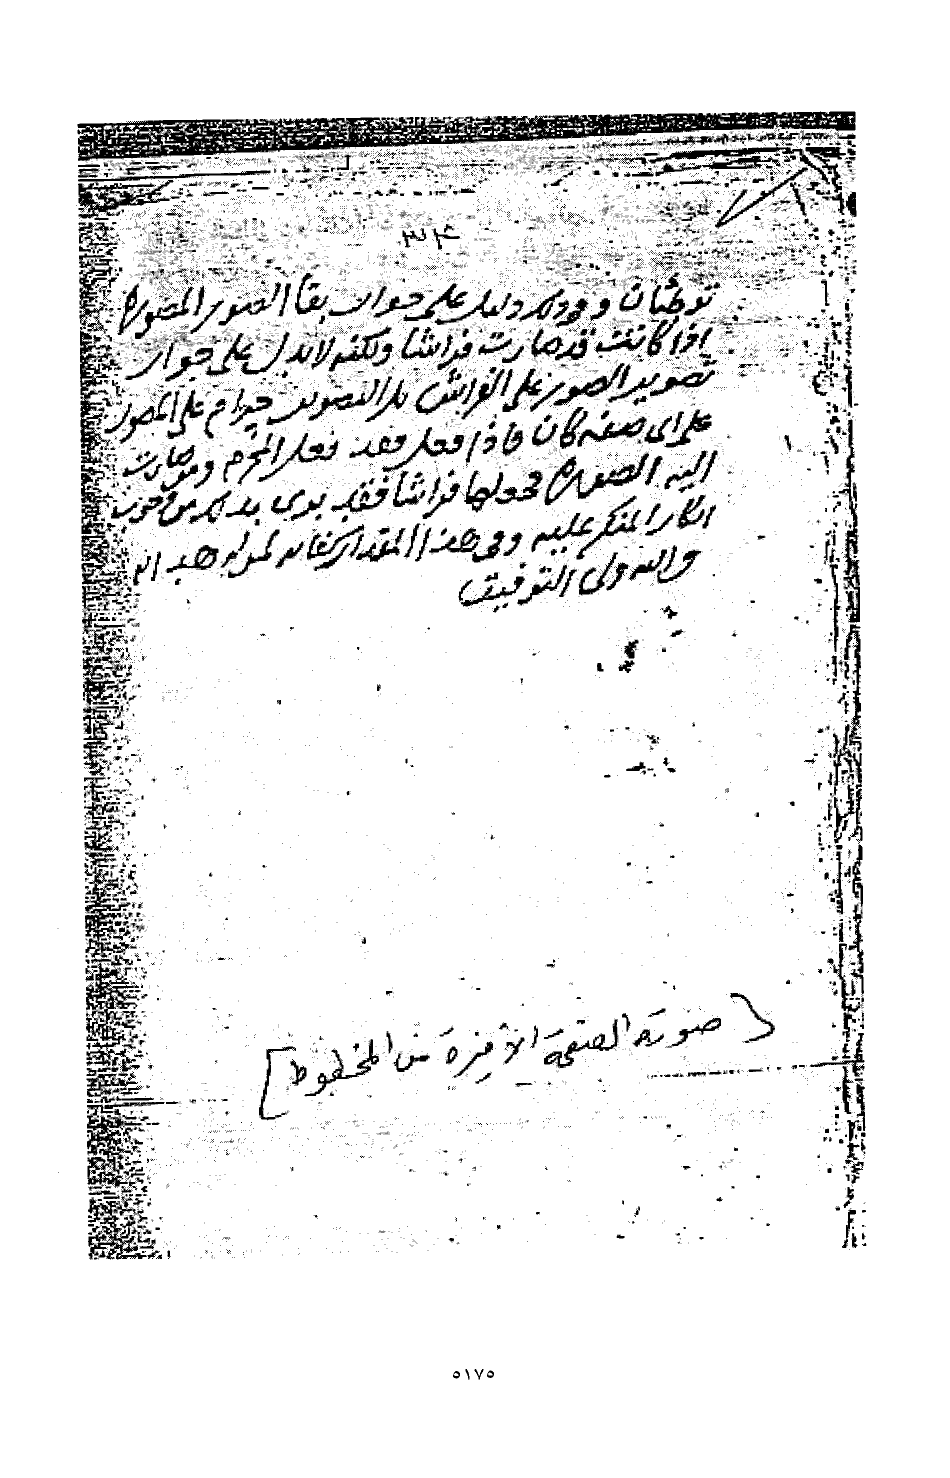 ٣٠٤
توطئان وفي ذلك دليل على جواز بقا الصور المصوره
اذا كانت قد صارت فراشا ولكنه لا يدل على جواز
تصوير الصور على الفراش بل التصوير حرام على المصور
على اى صفه كان فاذا فعل فقد فعل المحرم ومن صارت
اليه الصوره فجعلها فراشا فقد برى بذلك من وجوب
انكار المنكر عليه وفي هذا المقدار كفايه لمن له هدايه
والله ولى التوفيق
[صورة الصفحة الأخيرة من المخطوط]
٥١٧٥